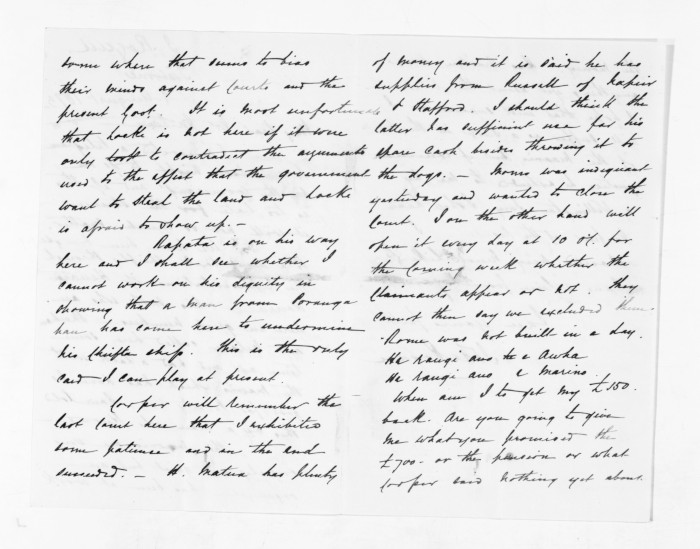 some where that seems to bias
their minds against Courts and the
present Govt. It is most unfortunate
that Locke is not here if it were
only to contradict the arguments
used to the effect that the government
want to steal the land and Locke
is afraid to show up. -
Rapata is on his way
here and I shall see whether I
cannot work on his dignity in
showing that a man from Poranga
hau has come here to undermine
his Chiefta ship. This is the only
card I can play at present.
Cooper will remember the
last Court here that I exhibited
some patience and in the end
succeeded. - H. Matua has plenty
of money and it is said he has
supplies from Russell of Napier
& Stafford. I should think the
latter has sufficient use for his
spare cash besides throwing it to
the dogs. - Morris was indignant
yesterday and wanted to close the
Court. I on the other hand will
open it every day at 10 O'c. for
the coming week whether the
Claimants appear or not. They
cannot then say we excluded them -
- Rome was not built in a day.
He rangi ano to a Awha
He rangi ano a Marino.
When am I to get my £150.
back. Are you going to give
me what you promised the
£700- or the pension or what
Cooper said nothing yet about.